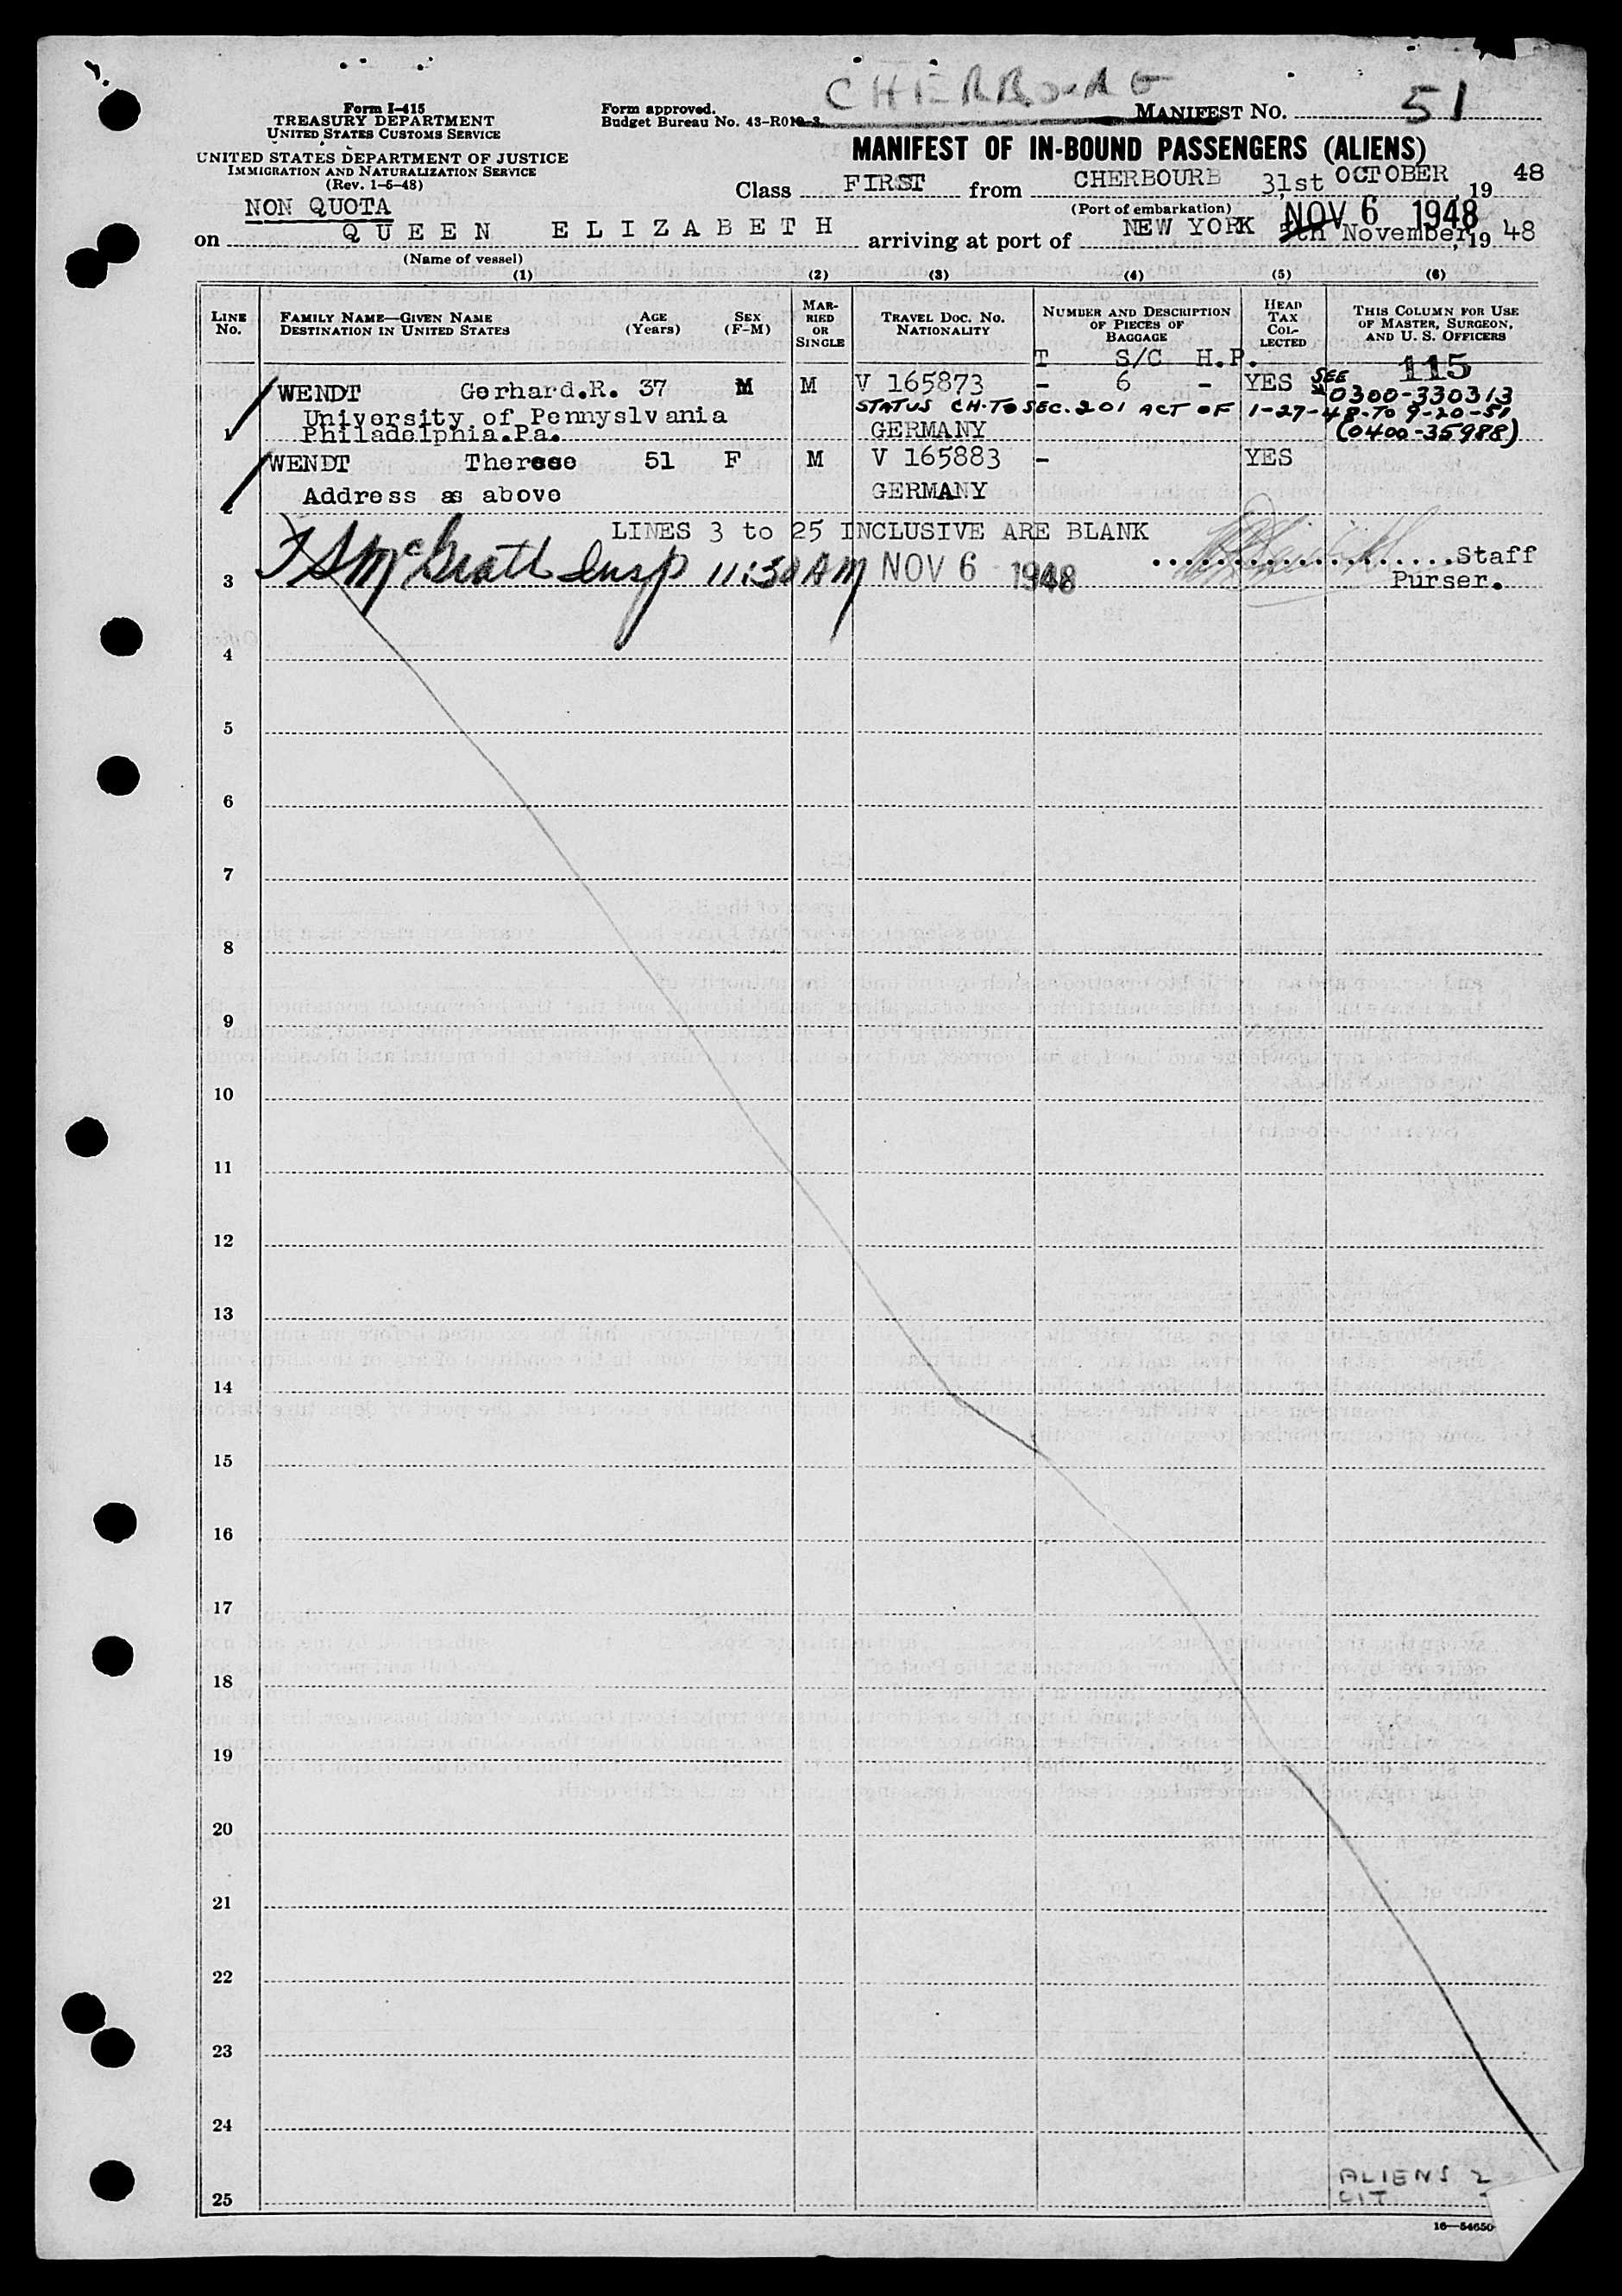 CHERBOURG
Form I-415
TREASURY DEPARTMENT
UNITED STATES CUSTOMS SERVICE
UNITED STATES DEPARTMENT OF JUSTICE
IMMIGRATION AND NATURALIZATION SERVICE
(Rev. 1-6-48)
Form approved.
Budget Bureau No. 43-R010-3
MANIFEST No. 51
MANIFEST OF IN-BOUND PASSENGERS (ALIENS)
Class FIRST from CHERBOURB 31st OCTOBER, 19 48
(Port of embarkation)
NON QUOTA
NOV 6 1948
on QUEEN ELIZABETH arriving at port of NEW YORK 5th November, 19 48
(Name of vessel)
(1) (2) (3) (4) (5) (6)
LINE No. FAMILY NAME—GIVEN NAME DESTINATION IN UNITED STATES AGE (Years) SEX (F-M) MARRIED OR SINGLE TRAVEL DOC. No. NATIONALITY NUMBER AND DESCRIPTION OF PIECES OF BAGGAGE HEAD TAX COLLECTED THIS COLUMN FOR USE OF MASTER, SURGEON, AND U. S. OFFICERS
T S/C H.P.
115
WENDT Gerhard.R. 37 M M V 165873 - 6 - YES SEE 0300-330313
STATUS CH. TO SEC. 201 ACT OF 1-27-48-TO 9-20-51
University of Pennyslvania
1 Philadelphia.Pa. GERMANY (0400-35988)
WENDT Therese 51 F M V 165883 - YES
2 Address as above GERMANY
LINES 3 to 25 INCLUSIVE ARE BLANK
McGrath Insp 11:30 AM NOV 6 1948 Staff
3 Purser.
4
5
6
7
8
9
10
11
12
13
14
15
16
17
18
19
20
21
22
23
24
ALIENS 2
25 CIT
16—54650